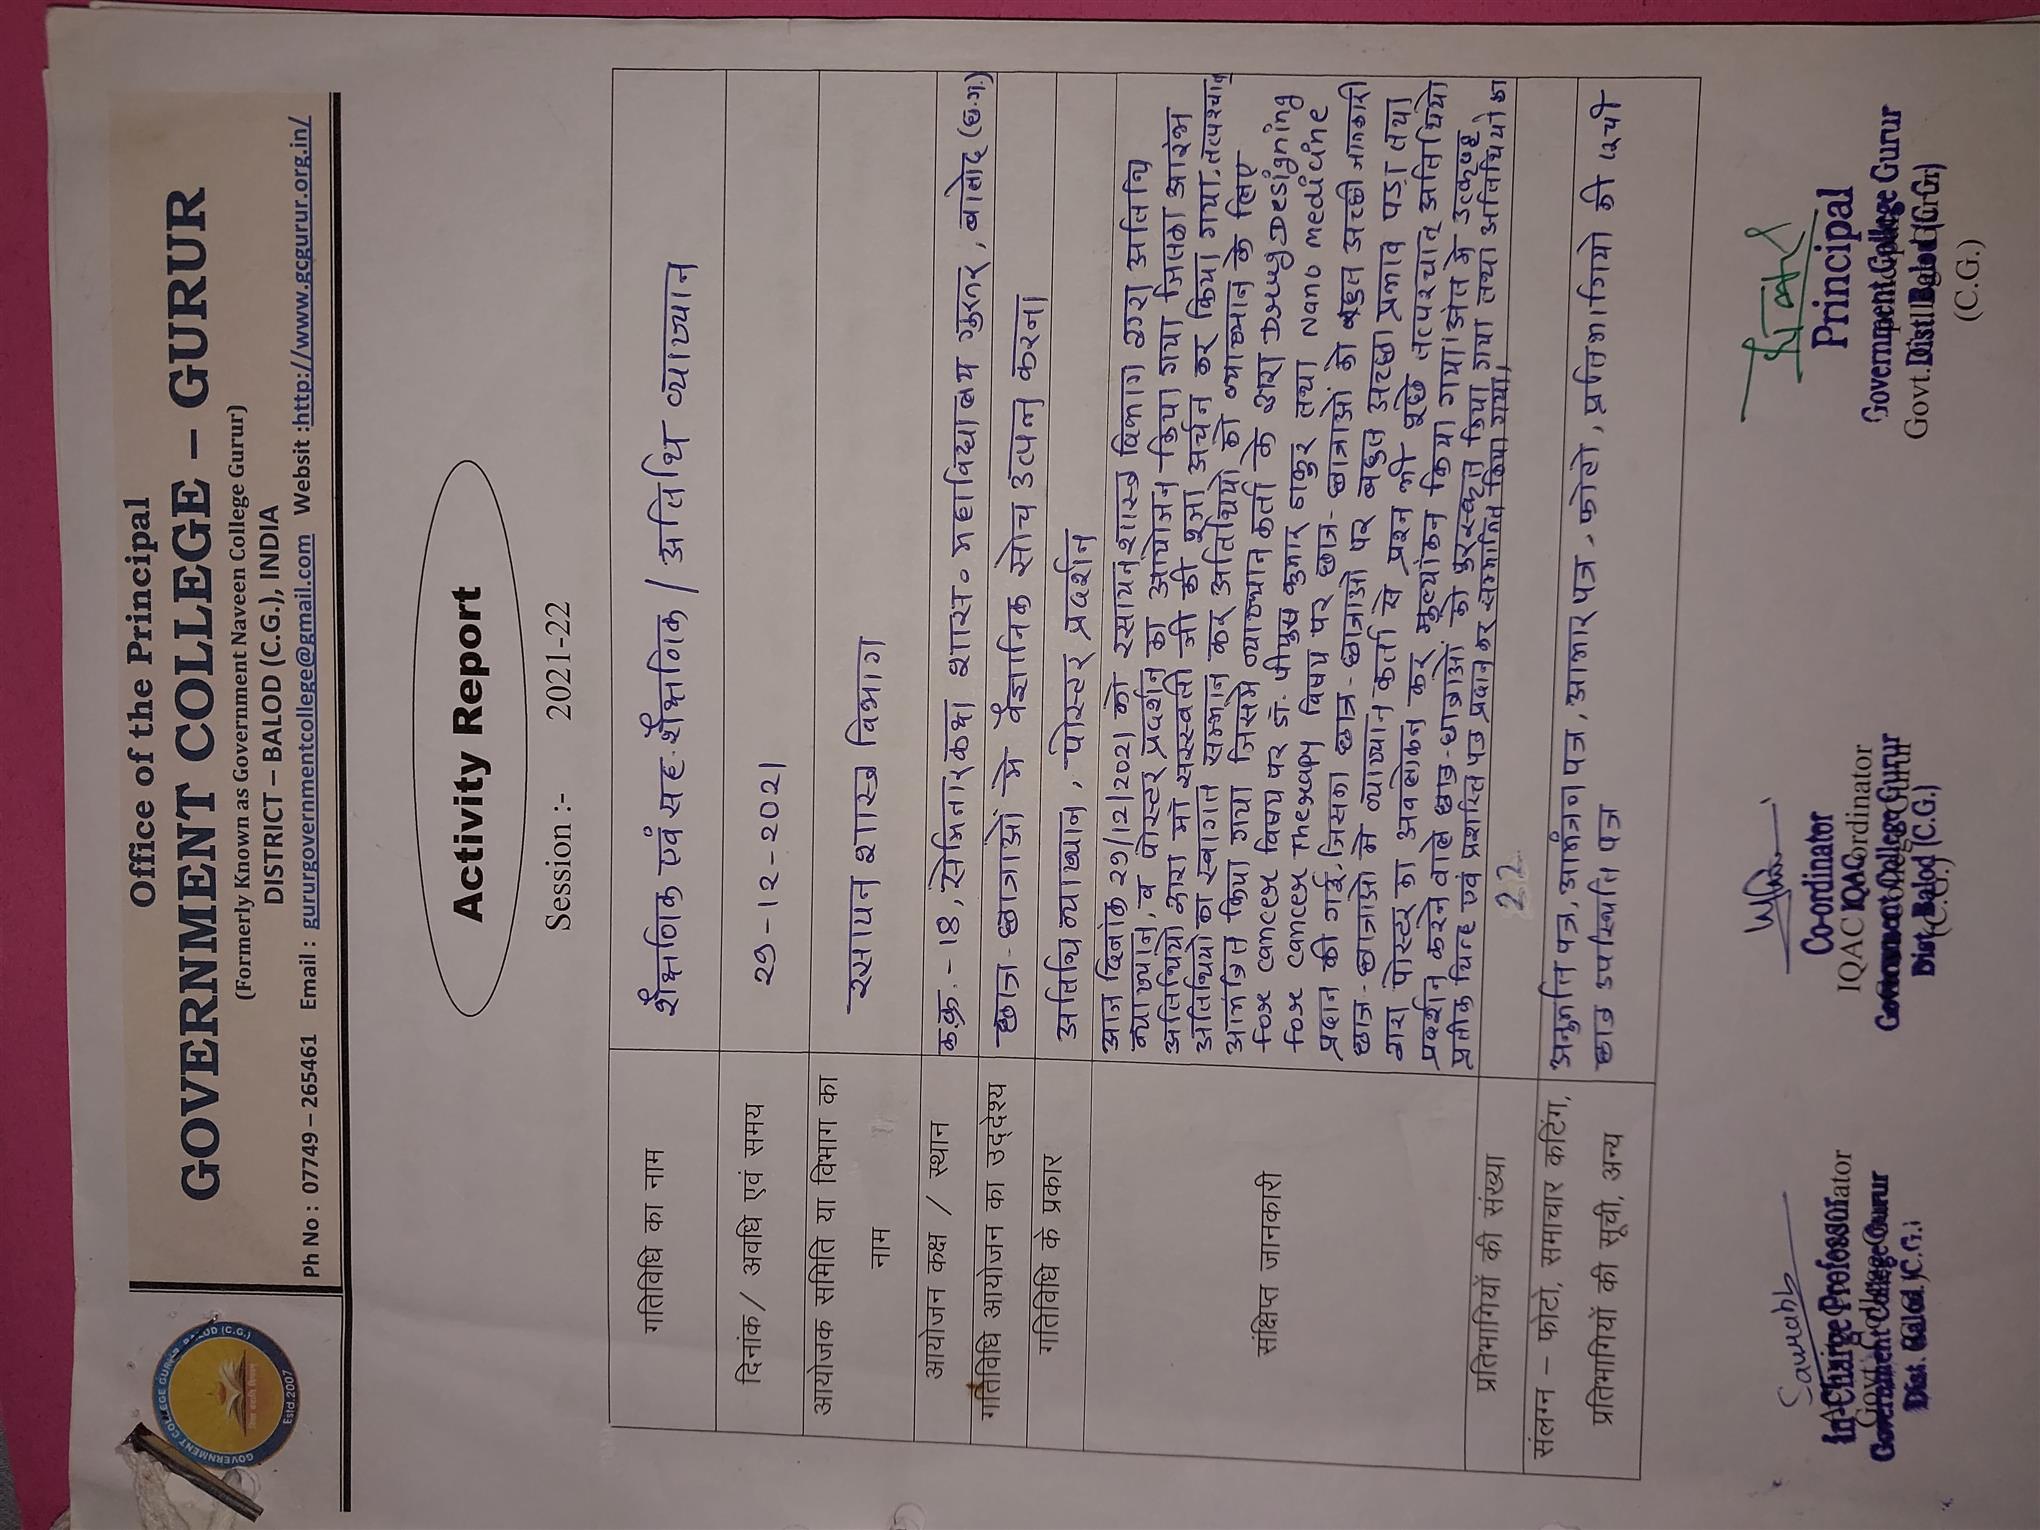 Office of the Principal
GOVERNMENT COLLEGE – GURUR
(Formerly Known as Government Naveen College Gurur)
DISTRICT – BALOD (C.G.), INDIA
Ph No : 07749 – 265461 Email : gururgovernmentcollege@gmail.com Websit :http://www.gcgurur.org.in/
GOVERNMENT COLLEGE GURUR BALOD (C.G.)
Estd.2007
Activity Report
Session :- 2021-22
गतिविधि का नाम
शैक्षणिक एवं सह-शैक्षणिक / अतिथि व्याख्यान
दिनांक / अवधि एवं समय
29-12-2021
आयोजक समिति या विभाग का
नाम
रसायन शास्त्र विभाग
आयोजन कक्ष / स्थान
क.क्र.-18, सेमिनार कक्ष शास० महाविद्यालय गुरूर, बालोद (छ.ग.)
गतिविधि आयोजन का उद्देश्य
छात्र-छात्राओं में वैज्ञानिक सोच उत्पन्न करना
गतिविधि के प्रकार
अतिथि व्याख्यान, पोस्टर प्रदर्शन
संक्षिप्त जानकारी
आज दिनांक 29/12/2021 को रसायन शास्त्र विभाग द्वारा अतिथि
व्याख्यान, व पोस्टर प्रदर्शन का आयोजन किया गया जिसका आरंभ
अतिथियो द्वारा माँ सरस्वती जी की पूजा अर्चन कर किया गया, तत्पश्चात्
अतिथियो का स्वागत सम्मान कर अतिथियो को व्याख्यान के लिए
आमंत्रित किया गया जिसमे व्याख्यान कर्ता के द्वारा Drug Designing
for cancer विषय पर डॉ. पीयूस कुमार ठाकुर तथा Nano medicine
for cancer Therapy विषय पर छात्र-छात्राओं को बहुत अच्छी जानकारी
प्रदान की गई, जिसका छात्र-छात्राओ पर बहुत अच्छा प्रभाव पड़ा तथा
छात्र-छात्राओ ने व्याख्यान कर्ता से प्रश्न भी पूछे तत्पश्चात् अतिथियो
द्वारा पोस्टर का अवलोकन कर मूल्यांकन किया गया। अंत मे उत्कृष्ठ
प्रदर्शन करने वाले छात्र-छात्राओं को पुरस्कृत किया गया तथा अतिथियो का
प्रतीक चिन्ह एवं प्रशस्ति पत्र प्रदान कर सम्मानित किया गया,
प्रतिभागियों की संख्या
22
संलग्न – फोटो, समाचार कटिंग,
प्रतिभागियों की सूची, अन्य
अनुमति पत्र, आमंत्रन पत्र, आभार पत्र - फोटो, प्रतिभागियो की सूची
छात्र उपस्थिति पत्र
In-Charge Professor
Government College Gurur
Dist. Balod (C.G.)
Co-ordinator
IQAC
IQAC Coordinator
Government College Gurur
Dist. Balod (C.G.)
Principal
Government College Gurur
Govt. College Gurur
Distt. Balod (C.G.)
(C.G.)